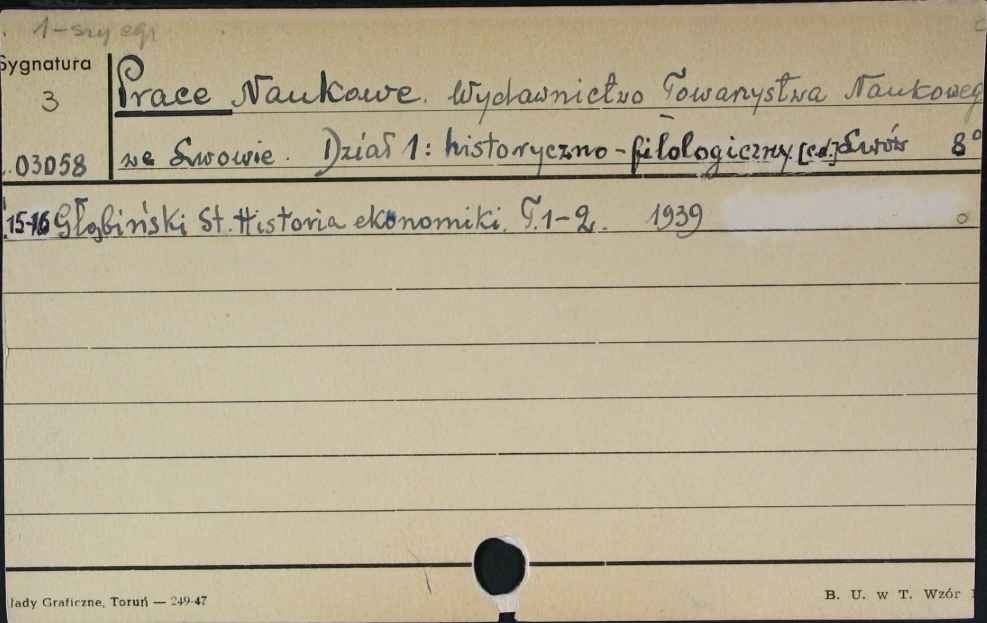 1-szy egz
Sygnatura
3
03058
Prace Naukowe. Wydawnictwo Towarzystwa Naukoweg
we Lwowie. Dział 1: historyczno-filologiczny [cd.] Lwów 8°
15-16 Głąbiński St. Historia ekonomiki. T.1-2. 1939
łady Graficzne, Toruń — 249-47
B. U. w T. Wzór